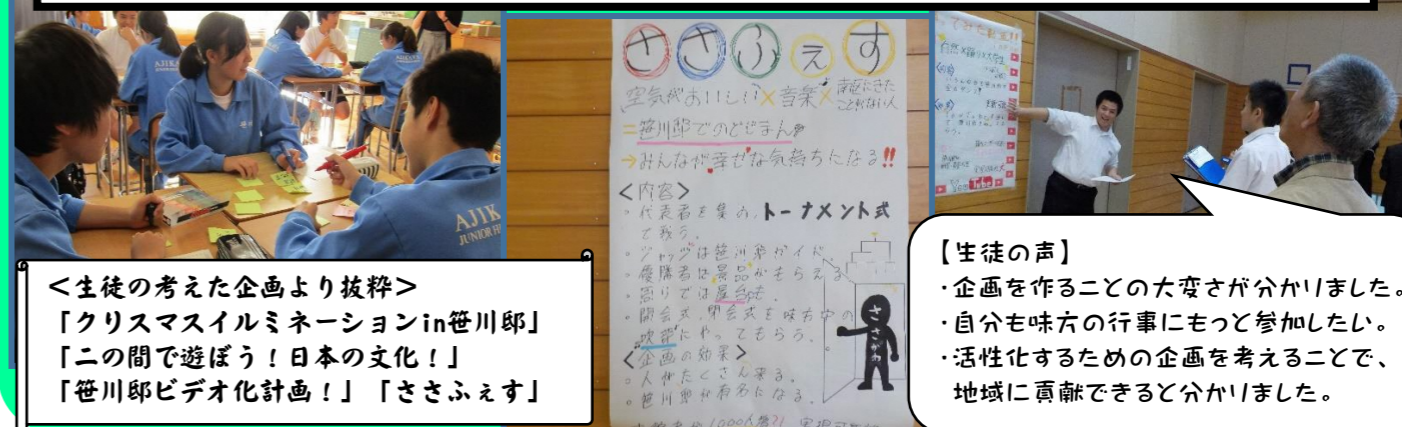 AJIKA
AJIK
JUNIOR HIGH
<生徒の考えた企画より抜粋>
「クリスマスイルミネーションin笹川邸」
「二の間で遊ぼう!日本の文化!」
「笹川邸ビデオ化計画!」「ささふぇす」
ささふぇす
空気がおいしい×音楽×
ことがない人
=笹川邸でのどじまん
→みんなが幸せな気持ちになる!!
<内容>
。代表者を集め、トーナメント式
で戦う。
。ジャッジは笹川邸ガイド
。優勝者は景品がもらえる
。周りでは屋台も。
。開会式、閉会式を味方中の
吹部にやってもらう。
<企画の効果>
。人がたくさん来る。
。笹川邸が有名になる。
ささがわ
【生徒の声】
・企画を作ることの大変さが分かりました。
・自分も味方の行事にもっと参加したい。
・活性化するための企画を考えることで、
地域に貢献できると分かりました。